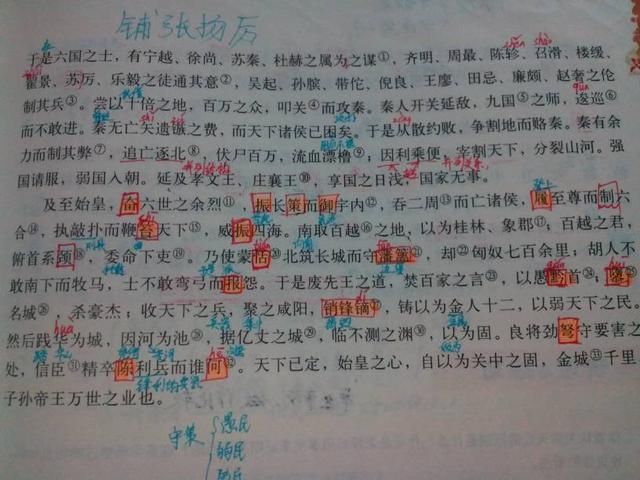 铺张扬厉
于是六国之士，有宁越、徐尚、苏秦、杜赫之属为之谋①，齐明、周最、陈轸、召滑、楼缓、
翟景、苏厉、乐毅之徒通其意②，吴起、孙膑、带佗、倪良、王廖、田忌、廉颇、赵奢之伦
制其兵③。尝以十倍之地，百万之众，叩关④而攻秦。秦人开关延敌，九国⑤之师，逡巡⑥
而不敢进。秦无亡矢遗镞之费，而天下诸侯已困矣。于是从散约败，争割地而赂秦。秦有余
力而制其弊⑦，追亡逐北⑧，伏尸百万，流血漂橹⑨；因利乘便，宰割天下，分裂山河。强
国请服，弱国入朝。延及孝文王、庄襄王⑩，享国之日浅，国家无事。
及至始皇，奋六世之余烈⑪，振长策而御宇内⑫，吞二周⑬而亡诸侯，履至尊而制六
合⑭，执敲扑而鞭笞天下⑮，威振四海。南取百越⑯之地，以为桂林、象郡⑰；百越之君，
俯首系颈⑱，委命下吏⑲。乃使蒙恬⑳北筑长城而守藩篱㉑，却㉒匈奴七百余里；胡人不
敢南下而牧马，士不敢弯弓而报怨。于是废先王之道，焚百家之言㉓，以愚黔首㉔；隳
名城㉕，杀豪杰；收天下之兵，聚之咸阳，销锋镝㉖，铸以为金人十二，以弱天下之民。
然后践华为城㉗，因河为池㉘，据亿丈之城㉙，临不测之渊㉚，以为固。良将劲弩守要害之
处，信臣㉛精卒陈利兵而谁何㉜。天下已定，始皇之心，自以为关中之固，金城㉝千里，
子孙帝王万世之业也。
守策
愚民
弱民